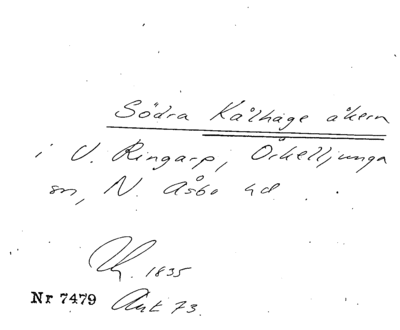 Södra Kålhage åkern
i V. Ringarp, Örkelljunga
sn, N. Åsbo hd.
1835
Nr 7479 Akt 73.